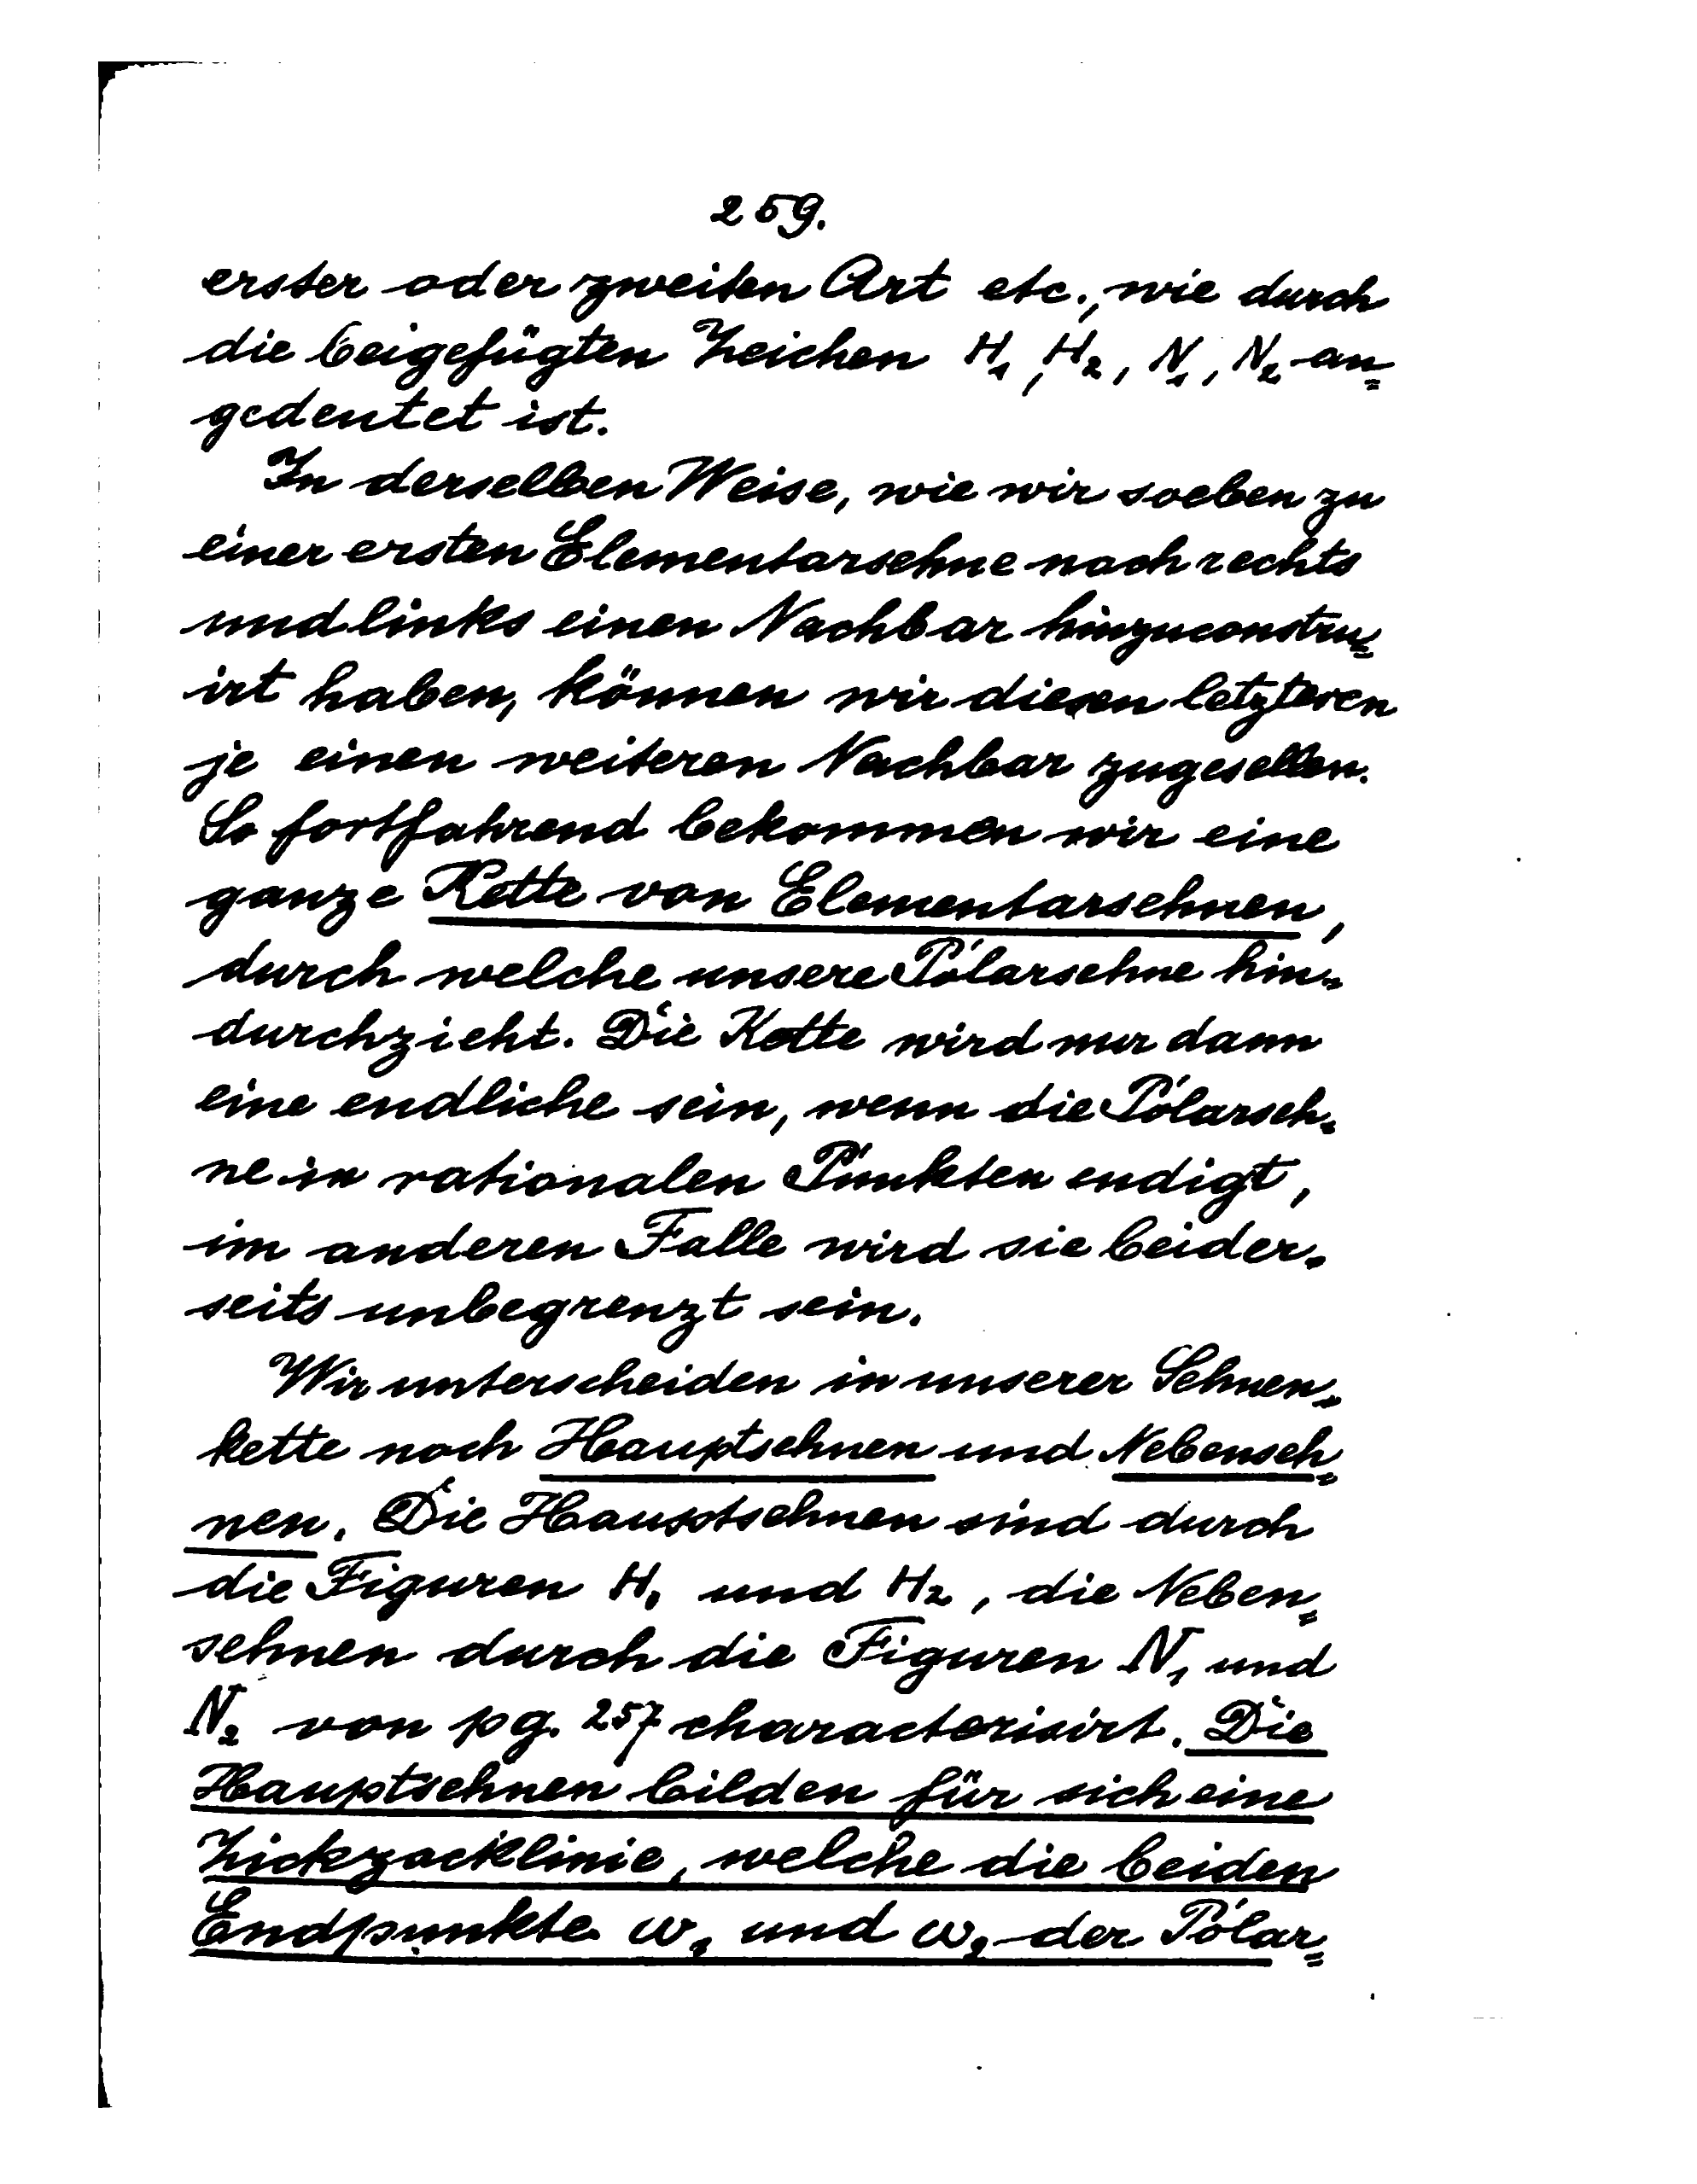 259.
erster oder zweiten Art etc., wie durch
die beigefügten Zeichen H₁, H₂, N₁, N₂ an=
gedeutet ist.
In derselben Weise, wie wir soeben zu
einer ersten Elementarsehne nach rechts
und links einen Nachbar hinzuconstru=
irt haben, können wir diesen letzteren
je einen weiteren Nachbar zugesellen.
So fortfahrend bekommen wir eine
ganze Kette von Elementarsehnen,
durch welche unsere Polarsehne hin=
durchzieht. Die Kette wird nur dann
eine endliche sein, wenn die Polarseh=
ne in rationalen Punkten endigt,
im anderen Falle wird sie beider=
seits unbegrenzt sein.
Wir unterscheiden in unserer Sehnen=
kette noch Hauptsehnen und Nebenseh=
nen. Die Hauptsehnen sind durch
die Figuren H₁ und H₂, die Neben=
sehnen durch die Figuren N₁ und
N₂ von pg. 257 characterisirt. Die
Hauptsehnen bilden für sich eine
Zickzacklinie, welche die beiden
Endpunkte ω₁ und ω₂ der Polar=